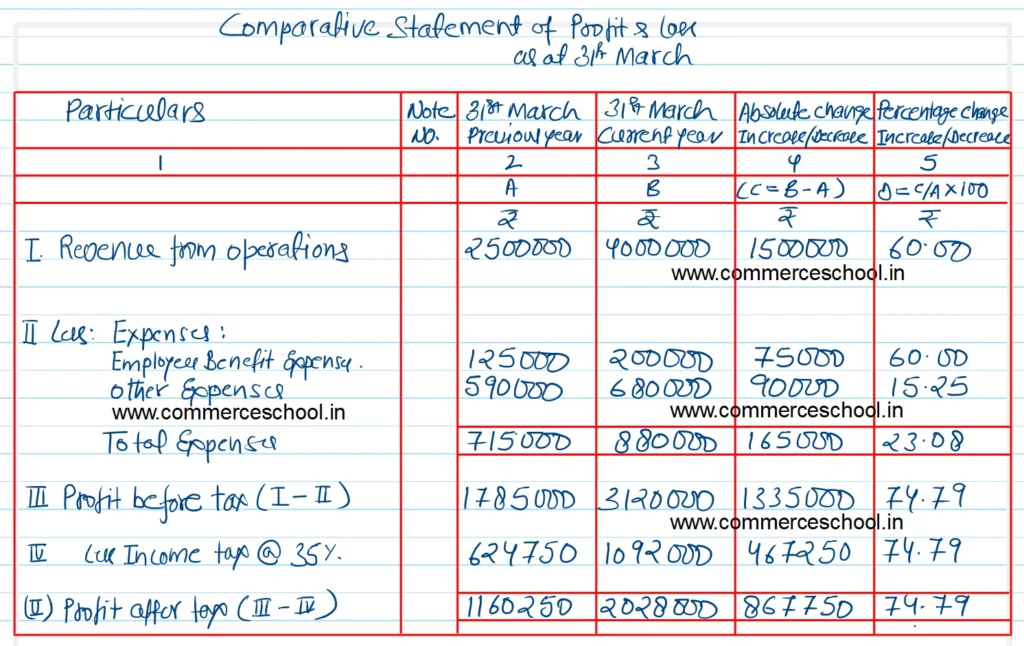 Comparative Statement of Profit & Loss
as at 31st March
Particulars Note No. 31st March Previous year 31st March Current year Absolute change Increase/Decrease Percentage change Increase/Decrease
1 2 3 4 5
A B (C = B - A) D = C/A × 100
₹ ₹ ₹ ₹
I. Revenue from operations 2500000 4000000 1500000 60.00
www.commerceschool.in
II Less: Expenses:
Employee Benefit Expense. 125000 200000 75000 60.00
other Expenses 590000 680000 90000 15.25
www.commerceschool.in www.commerceschool.in
Total Expenses 715000 880000 165000 23.08
III Profit before tax (I - II) 1785000 3120000 1335000 74.79
www.commerceschool.in
IV Less Income tax @ 35%. 624750 1092000 467250 74.79
(V) Profit after tax (III - IV) 1160250 2028000 867750 74.79